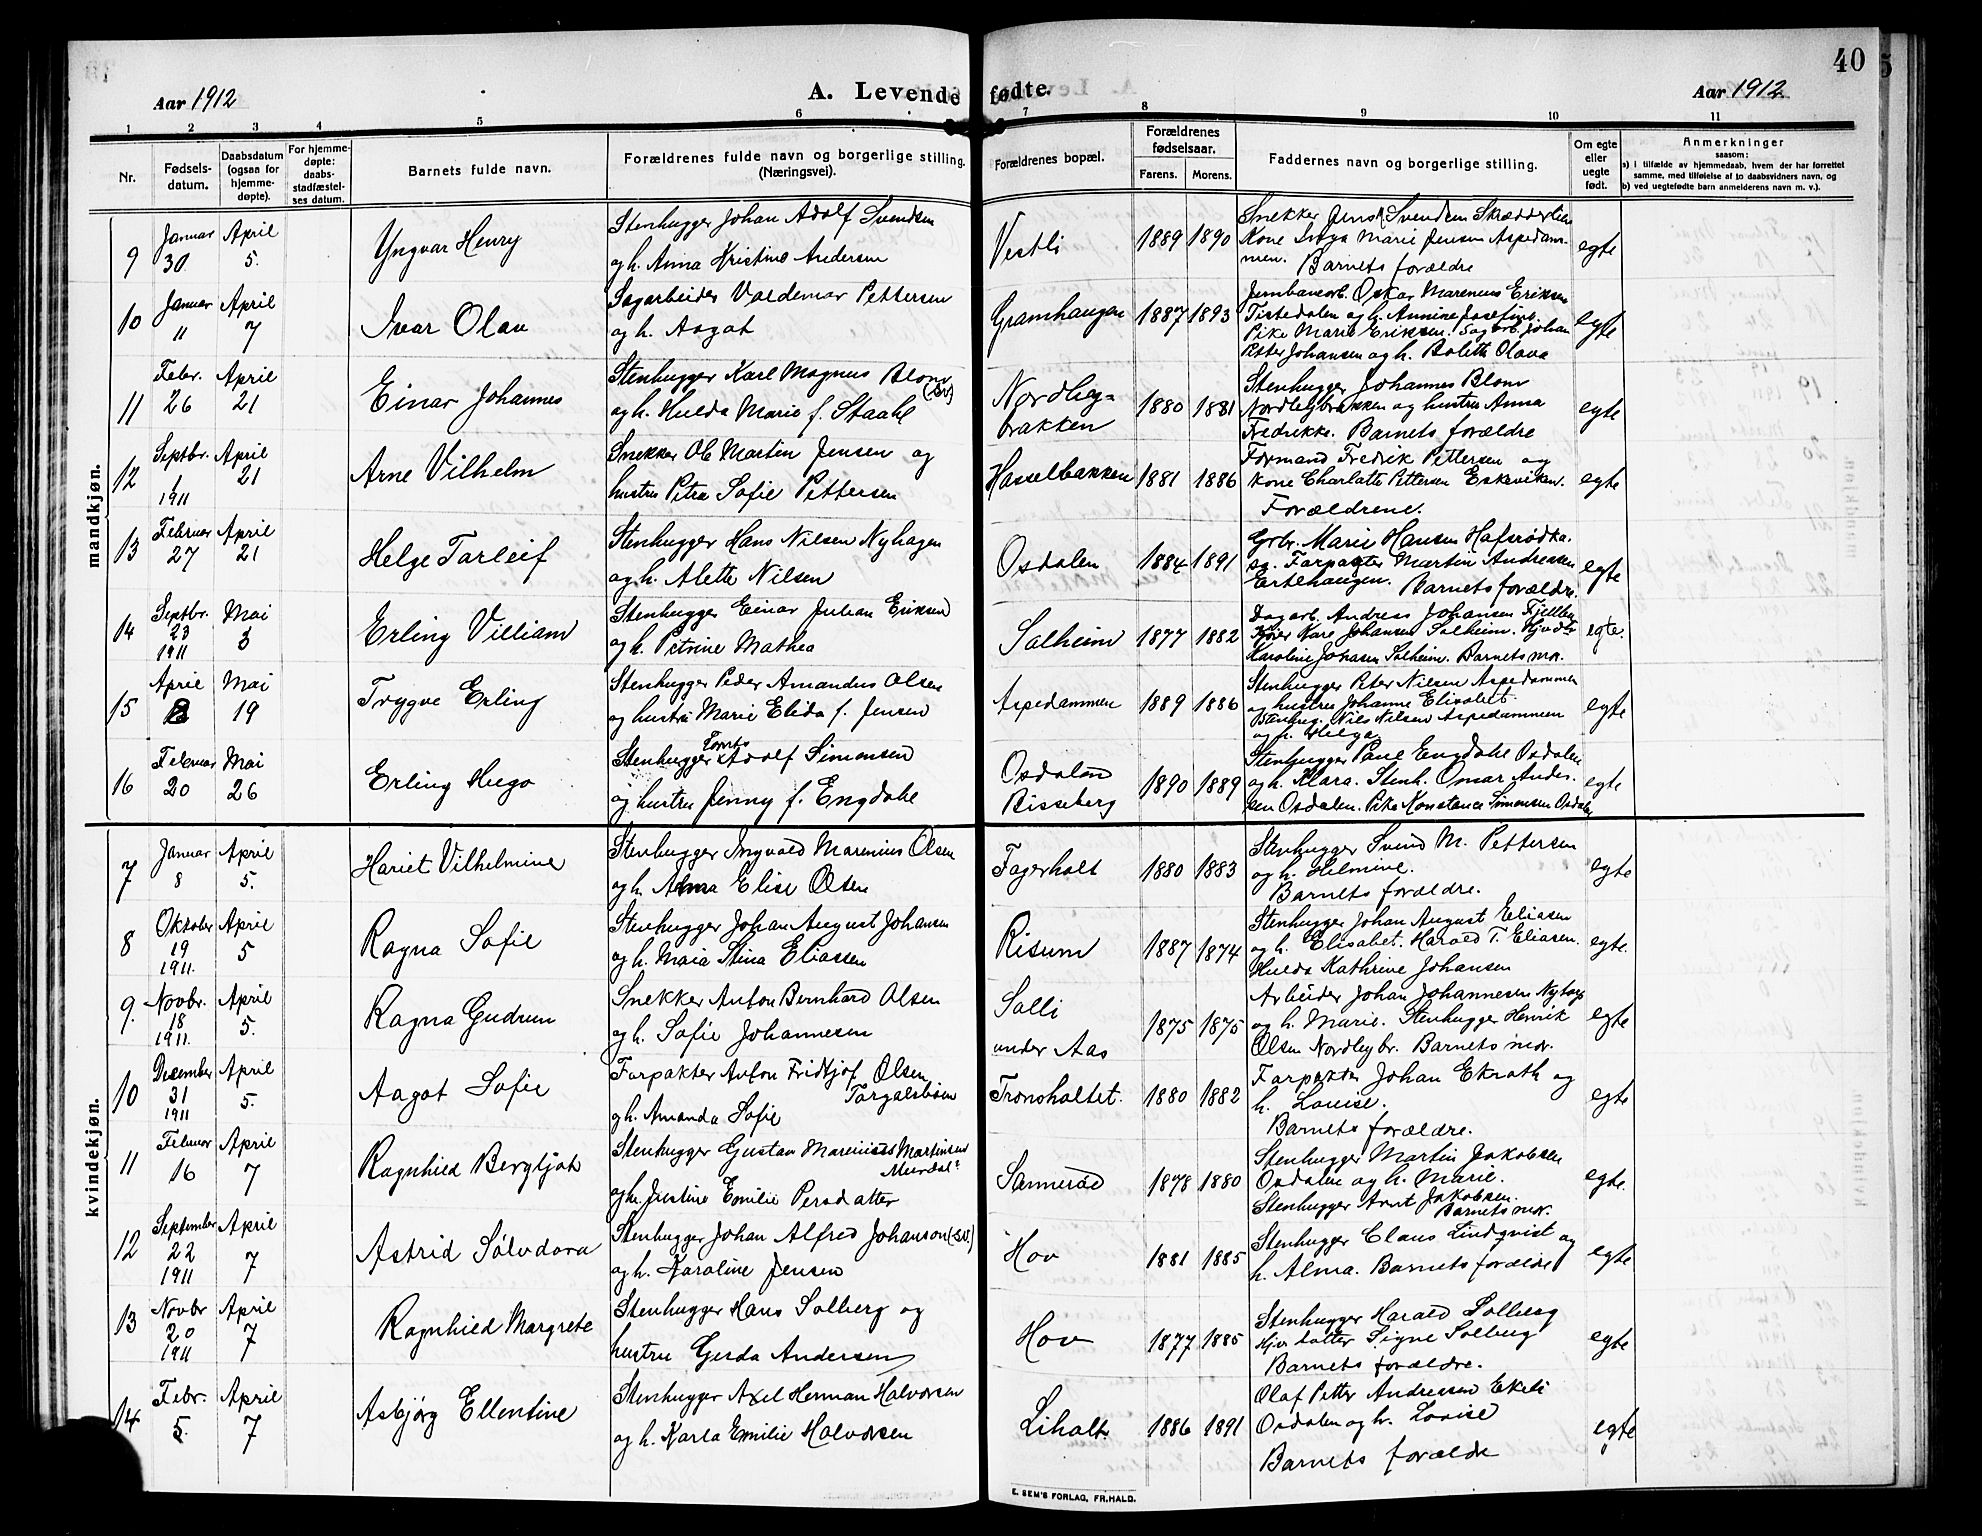 40
Aar 1912
A. Levende fødte.
Aar 1912
1 2 3 4 5 6 7 8 9 10 11
Nr.
Fødsels-
datum.
Daabsdatum
(ogsaa for
hjemme-
døpte).
For hjemme-
døpte:
daabs-
stadfæstel-
ses datum.
Barnets fulde navn.
Forældrenes fulde navn og borgerlige stilling.
(Næringsvei).
Forældrenes bopæl.
Forældrenes
fødselsaar.
Farens. Morens.
Faddernes navn og borgerlige stilling.
Om egte
eller
uegte
født.
Anmerkninger
saasom:
a) i tilfælde av hjemmedaab, hvem der har forrettet
samme, med tilføielse af to daabsvidners navn, og
b) ved uegtefødte barn anmelderens navn m. v.).
mandkjøn.
9
Januar 30
April 5.
Yngvar Henry
Stenhugger Johan Adolf Svendsen
og h. Anna Kristine Andersen
Vestli
1889 1890
Snekker Jens Svendsen
Kone Marie Jensen Aspedam-
men. Barnets forældre
egte
10
Januar 11
April 7
Ivar Olav
Sagarbeider Valdemar Pettersen
og h. Aagot
Gramhaugen
1887 1893
Jernbanearb. Oskar Marenius Eriksen
Tistedalen og h. Annine Josefine.
Pike Marie Eriksen. Sagarb. Johan
Petter Johansen og h. Bolette Olava
egte
11
Febr. 26
April 21
Einar Johannes
Stenhugger Karl Magnus Blom
(sv.)
og h. Hulda Marie f. Staahl
Nordleg-
brakken
1880 1881
Stenhugger Johannes Blom
Nordlegbrakken og hustru Anna
Fredrikke. Barnets forældre
egte
12
Septbr. 1 1911
April 21
Arne Vilhelm
Snekker Ole Martin Jensen og
hustru Petra Sofie Pettersen
Hasselbakken
1881 1886
Formand Fredrik Pettersen og
kone Charlotte Pettersen Eskeviken.
Forældrene.
egte
13
Februar 27
April 21
Helge Tarleif
Stenhugger Hans Nilsen Nyhagen
og h. Alette Nilsen
Osdalen
1884 1891
Grbr. Marie Hansen
Forpagter Martin Andreassen
Ertehaugen. Barnets forældre.
egte
14
Septbr. 23 1911
Mai 3
Erling Villiam
Stenhugger Einar Julian Eriksen
og h. Petrine Mathea
Solheim
1877 1882
Dagarb. Andreas Johansen
Kjører Kare Johansen Solheim.
Karoline Johansen Solheim. Barnets mor.
egte.
15
April
Mai 19
Trygve Erling
Stenhugger Peder Amandus Olsen
og hustru Marie Elida f. Jensen
Aspedammen
1889 1886
Stenhugger Peter Nilsen Aspedammen
og hustru Johanne Elisabet.
Stenhug. Nils Nilsen Aspedammen
og h. Helga
egte
16
Februar 20
Mai 26
Erling Hugo
Stenhugger Adolf Simonsen
og hustru Jenny f. Engdahl
Osdalen
Bisseberg
1890 1889
Stenhugger Paul Engdahl Osdalen
og h. Klara. Stenh. Omar Ander-
sen Osdalen. Pike Konstance Simonsen Osdalen
egte
kvindekjøn.
7
Januar 8
April 5.
Hariet Vilhelmine
Stenhugger Ingvald Marenius Olsen
og h. Alma Elise Olsen
Fagerholt
1880 1883
Stenhugger Svend M. Pettersen
og h. Helmine.
Barnets forældre.
egte
8
Oktober 19 1911.
April 5
Ragna Sofie
Stenhugger Johan August Johansen
og h. Maia Stina Eliassen
Risum
1887 1874
Stenhugger Johan August Eliasen
og h. Elisabet. Harald T. Eliasen.
Hulda Kathrine Johansen
egte.
9.
Novbr. 18 1911.
April 5.
Ragna Gudrun
Snekker Anton Bernhard Olsen
og h. Sofie Johannesen
Solli
under Aas
1875 1875
Arbeider Johan Johannesen
og h. Marie. Stenhugger Henrik
Olsen Nordlegbr. Barnets mor.
egte
10
Desember 31 1911
April 5.
Aagot Sofie
Forpakter Anton Fridtjof Olsen
Torgalsbøen
og h. Amanda Sofie
Tronsholtet.
1880 1882
Forpakter Johan Ekrath og
h. Louise.
Barnets forældre.
egte
11
Februar 16
April 7
Ragnhild Bergljot
Stenhugger Gustav Marenius Martinsen
og h. Justine Emilie Persdatter
Sannerød
1878 1880
Stenhugger Martin Jakobsen
Osdalen og h. Marie.
Stenhugger Arnt Jakobsen.
Barnets mor.
egte.
12
September 22 1911
April 7
Astrid Sølvdora
Stenhugger Johan Alfred Johanson (sv.)
og h. Karoline Jensen
Hov
1881 1885
Stenhugger Claus Lindqvist og
h. Alma. Barnets forældre
egte
13
Novbr 20 1911
April 7
Ragnhild Margrete
Stenhugger Hans Solberg og
hustru Gerda Andersen
Hov
1877 1885
Stenhugger Harald Solberg
Hjv. datter Signe Solberg
Barnets forældre.
egte
14
Febr. 5.
April 7
Asbjørg Ellentine
Stenhugger Axel Herman Halvorsen
og h. Karla Emilie Halvorsen
Liholt
1886 1891
Olaf Petter Andressen Ekeli
Osdalen og h. Lovise
Barnets forældre
egte
E. SEM'S FORLAG, FR.HALD.